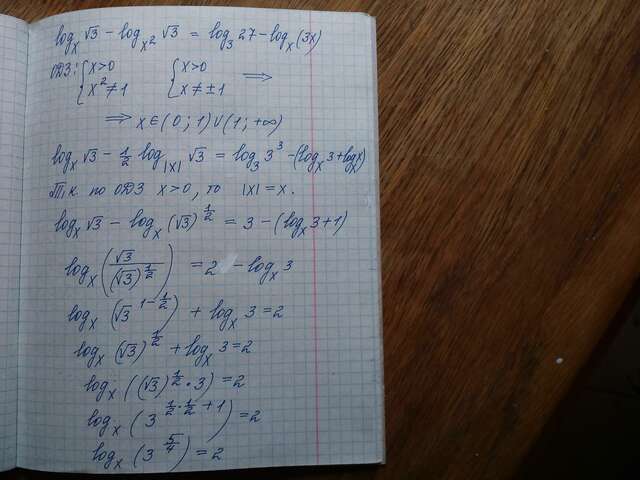 logₓ √3 − log_{x²} √3 = log₃ 27 − logₓ (3x)
ОДЗ: { x>0 { x>0 ⟹
x² ≠ 1 x ≠ ±1
⟹ x ∈ (0; 1) ∪ (1; +∞)
logₓ √3 − 1/2 log_{|x|} √3 = log₃ 3³ − (logₓ 3 + logₓ x)
Т.к. по ОДЗ x>0, то |x| = x.
logₓ √3 − logₓ (√3)^{1/2} = 3 − (logₓ 3 + 1)
logₓ (√3 / (√3)^{1/2}) = 2 − logₓ 3
logₓ (√3^{1 − 1/2}) + logₓ 3 = 2
logₓ (√3)^{1/2} + logₓ 3 = 2
logₓ ((√3)^{1/2} · 3) = 2
logₓ (3^{1/2 · 1/2 + 1}) = 2
logₓ (3^{5/4}) = 2